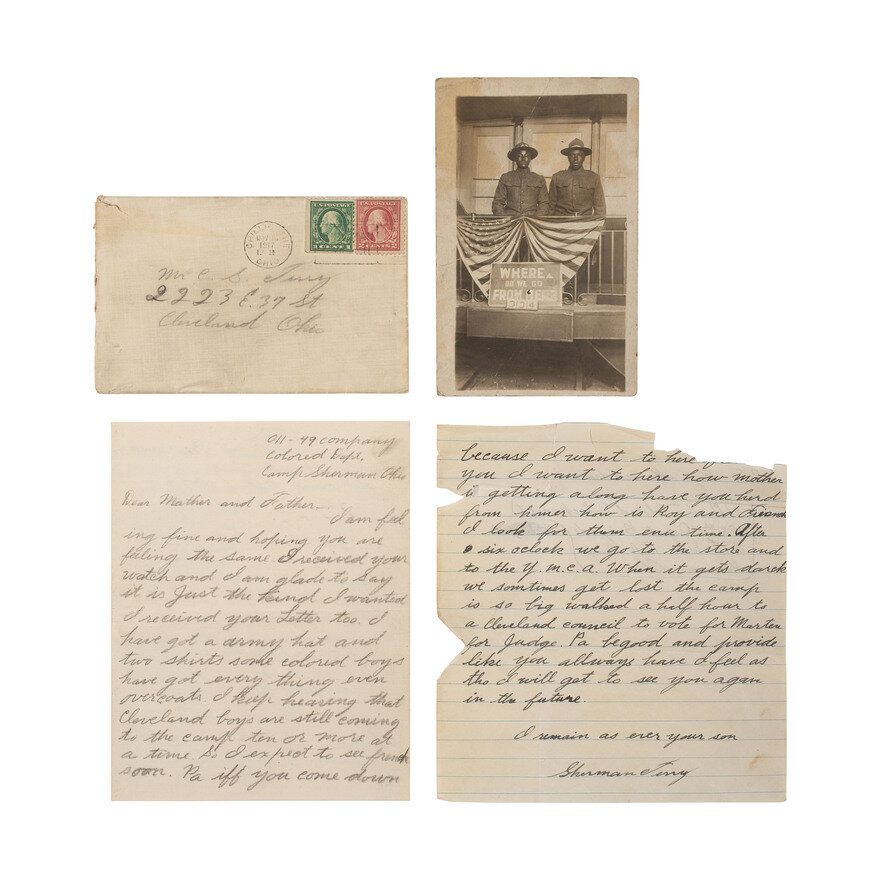 NOV
1917
OHIO
U.S. POSTAGE
1 CENT 1
U.S. POSTAGE
2 CENTS 2
Mr C. S. Terry
2223 E. 37 St
Cleveland Ohio
WHERE
DO WE GO
FROM HERE
011 - 49 company
Colored Dept.
Camp Sherman Ohio
Dear Mather and Father
I am feel
ing fine and hoping you are
felling the same. I received your
watch and I am glade to say
it is Just the kind I wanted
I received your Letter too. I
have got a army hat and
two shirts some colored boys
have got every thing even
overcoats. I keep hearing that
Cleveland boys are still coming
to the camp ten or more at
a time. So I expect to see french
soon. Pa iff you come down
because I want to here
you I want to here how mother
is getting along have you herd
from homer how is Roy and
I look for them enie time. After
six oclock we go to the store and
to the Y.M.C.A. When it gets darck
we somtimes get lost the camp
is so big walked a half hour to
a Cleveland council to vote for Marten
for Judge. Pa begood and provide
like you allways have I feel as
tho I will get to see you again
in the future.
I remain as ever your son
Sherman Terry